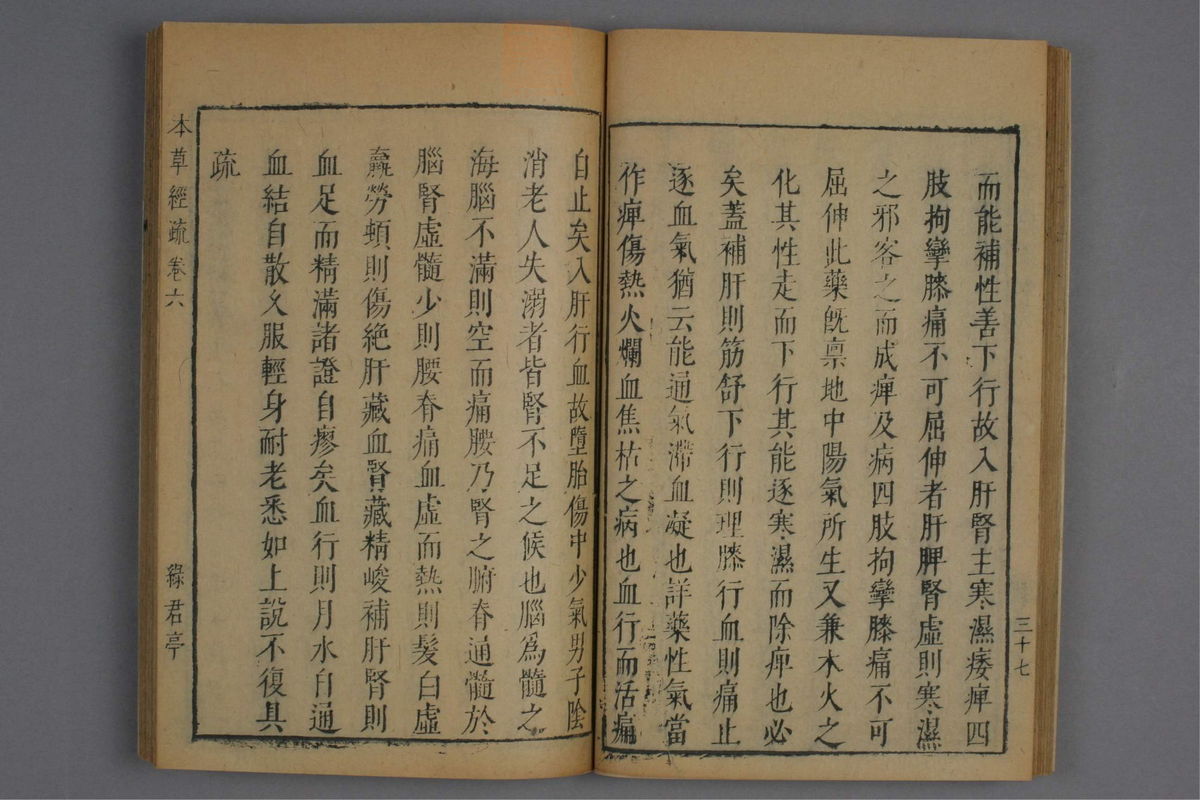 而能補性善下行故入肝腎主寒濕痿痺四
肢拘攣膝痛不可屈伸者肝脾腎虛則寒濕
之邪客之而成痺及病四肢拘攣膝痛不可
屈伸此藥旣禀地中陽氣所生又兼木火之
化其性走而下行其能逐寒濕而除痺也必
矣蓋補肝則筋舒下行則理膝行血則痛止
逐血氣猶云能通氣滯血凝也詳藥性氣當
作痺傷熱火爛血焦枯之病也血行而活痛
三十七
自止矣入肝行血故墮胎傷中少氣男子陰
消老人失溺者皆腎不足之候也腦爲髓之
海腦不滿則空而痛腰乃腎之腑脊通髓於
腦腎虛髓少則腰脊痛血虛而熱則髮白虛
羸勞頓則傷絶肝藏血腎藏精峻補肝腎則
血足而精滿諸證自瘳矣血行則月水自通
血結自散久服輕身耐老悉如上說不復具
疏
本草經疏 卷六 綠君亭